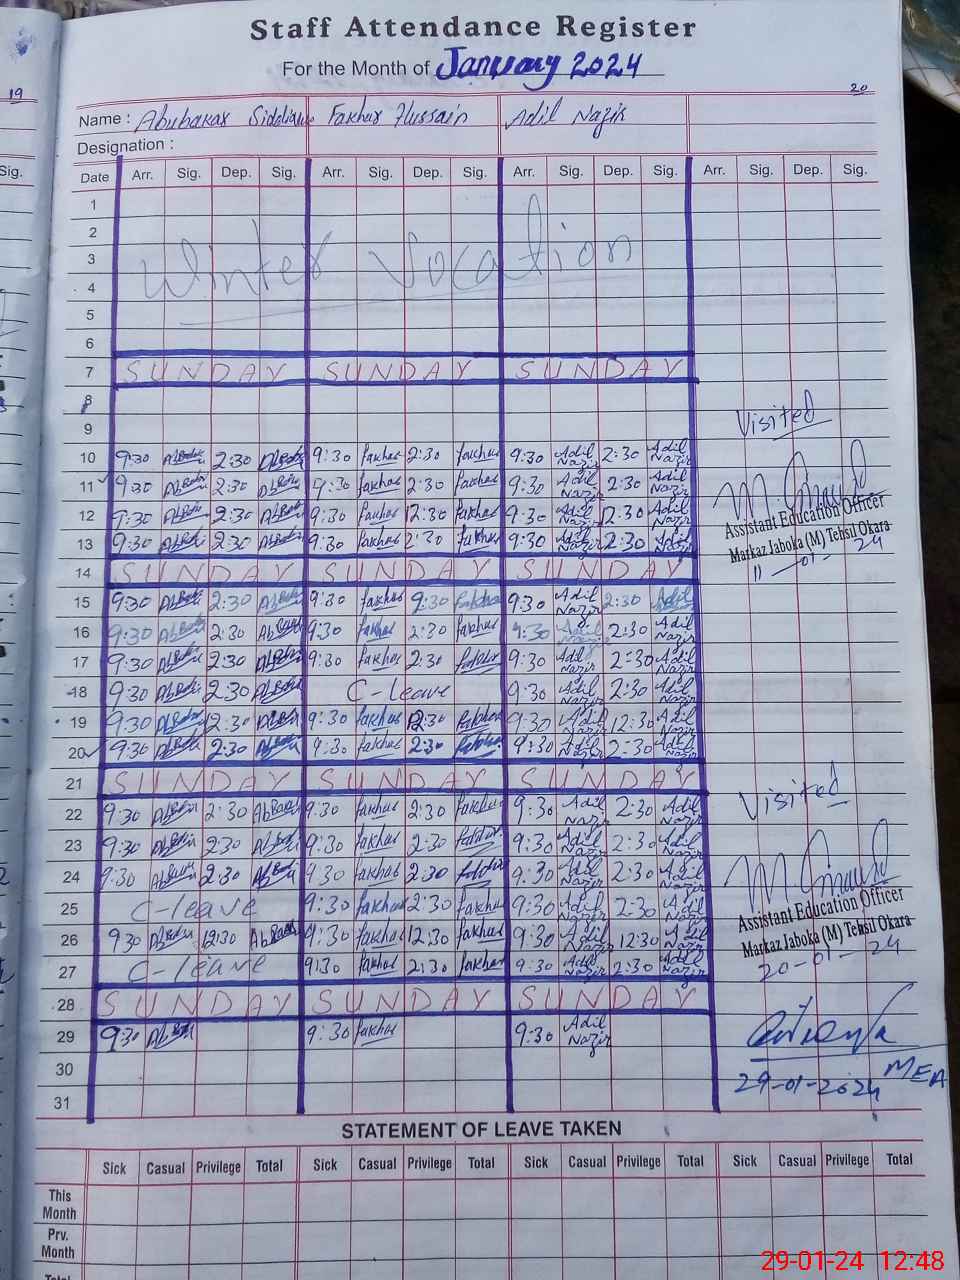 Staff Attendance Register
For the Month of January 2024
19
20
Name : Abubakar Siddique Fakhar Hussain Adil Nazir
Designation :
Sig.
Date Arr. Sig. Dep. Sig. Arr. Sig. Dep. Sig. Arr. Sig. Dep. Sig. Arr. Sig. Dep. Sig.
1
2
3
Winter Vocation
4
5
6
7 SUNDAY SUNDAY SUNDAY
8
9
Visited
10 9:30 2:30 9:30 fakhar 2:30 fakhar 9:30 Adil Nazir 2:30 Adil Nazir
11 9:30 2:30 9:30 fakhar 2:30 fakhar 9:30 Adil Nazir 2:30 Adil Nazir
12 9:30 2:30 9:30 fakhar 12:30 fakhar 9:30 Adil Nazir 12:30 Adil Nazir
Assistant Education Officer
13 9:30 2:30 9:30 fakhar 2:30 fakhar 9:30 Adil Nazir 2:30 Adil Nazir
Markaz Jaboka (M) Tehsil Okara
11-01-24
14 SUNDAY SUNDAY SUNDAY
15 9:30 2:30 9:30 fakhar 9:30 fakhar 9:30 Adil Nazir 2:30 Adil
16 9:30 2:30 9:30 fakhar 2:30 fakhar 9:30 Adil Nazir 2:30 Adil Nazir
17 9:30 2:30 9:30 fakhar 2:30 9:30 Adil Nazir 2:30 Adil Nazir
18 9:30 2:30 C-leave 9:30 Adil Nazir 2:30 Adil Nazir
19 9:30 12:30 9:30 fakhar 12:30 fakhar 9:30 Adil Nazir 12:30 Adil Nazir
20 9:30 2:30 9:30 fakhar 2:30 9:30 Adil Nazir 2:30 Adil Nazir
21 SUNDAY SUNDAY SUNDAY
Visited
22 9:30 2:30 9:30 fakhar 2:30 fakhar 9:30 Adil Nazir 2:30 Adil Nazir
23 9:30 2:30 9:30 fakhar 2:30 9:30 Adil Nazir 2:30 Adil Nazir
24 9:30 2:30 9:30 fakhar 2:30 9:30 Adil Nazir 2:30 Adil Nazir
25 C-leave 9:30 fakhar 2:30 fakhar 9:30 Adil Nazir 2:30 Adil Nazir
Assistant Education Officer
26 9:30 12:30 9:30 fakhar 12:30 fakhar 9:30 Adil Nazir 12:30 Adil Nazir
Markaz Jaboka (M) Tehsil Okara
27 C-leave 9:30 fakhar 2:30 fakhar 9:30 Adil Nazir 2:30 Adil Nazir
20-01-24
28 SUNDAY SUNDAY SUNDAY
29 9:30 9:30 fakhar 9:30 Adil Nazir
30
MEA
29-01-2024
31
STATEMENT OF LEAVE TAKEN
Sick Casual Privilege Total Sick Casual Privilege Total Sick Casual Privilege Total Sick Casual Privilege Total
This Month
Prv. Month
Total
29-01-24 12:48